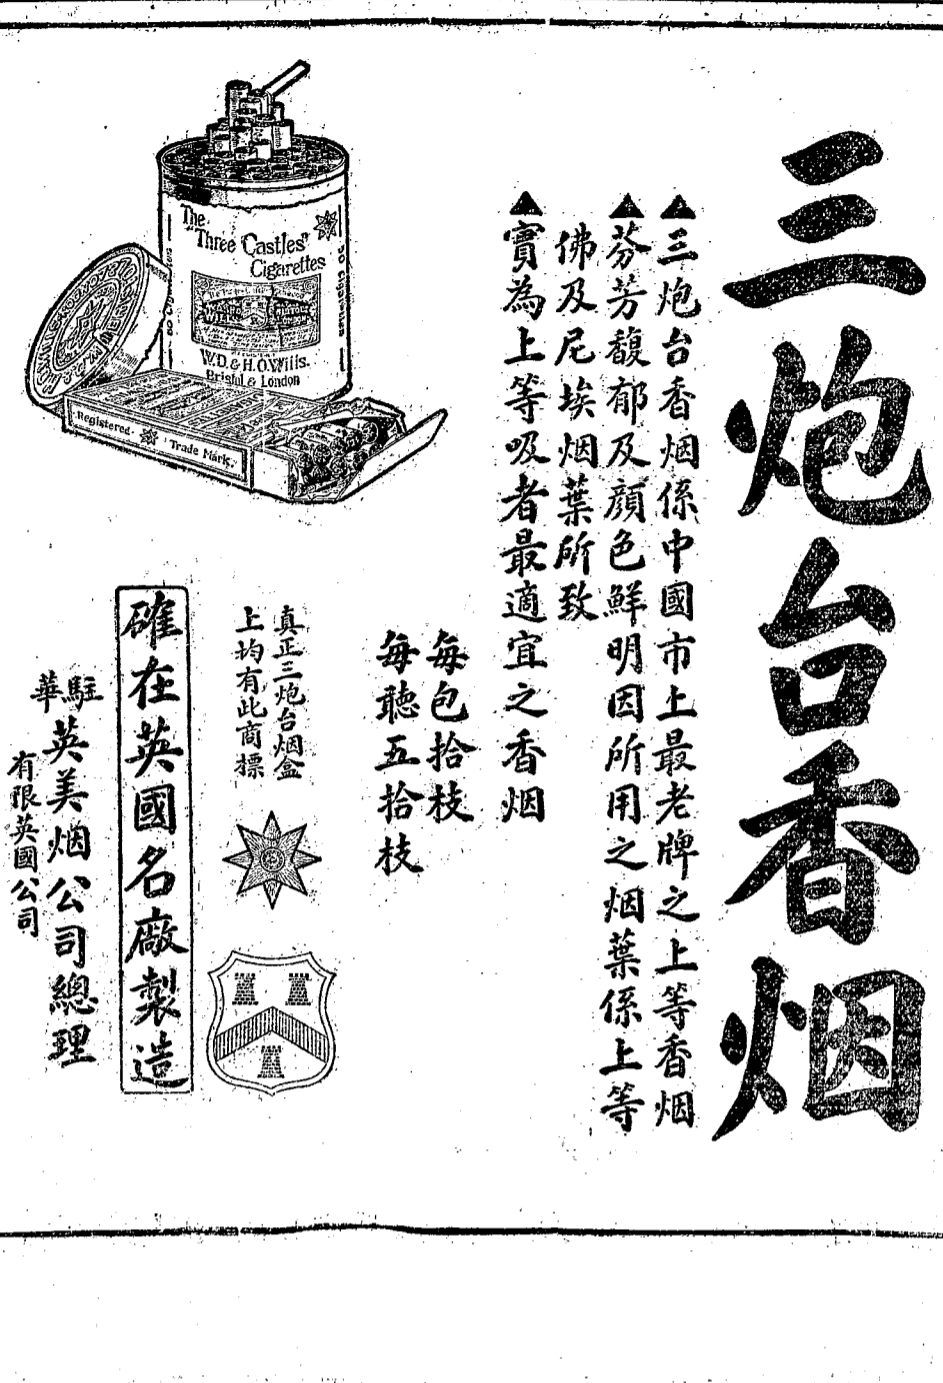 三炮台香烟
▲三炮台香烟係中國市上最老牌之上等香烟
▲芬芳馥郁及顔色鮮明因所用之烟葉係上等
佛及尼埃烟葉所致
▲實為上等吸者最適宜之香烟
每包拾枝
每聽五拾枝
真正三炮台烟盒
上均有此商標
確在英國名廠製造
駐華英美烟公司總理
有限英國公司
The
"Three Castles"
Cigarettes
W.D.& H.O.Wills.
Bristol & London
50 Cigarettes
Registered Trade Mark.